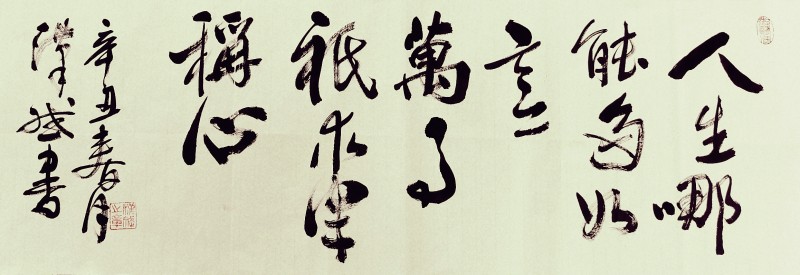 人生哪
能多如
意
萬事
祇求半
稱心
辛丑春月
書